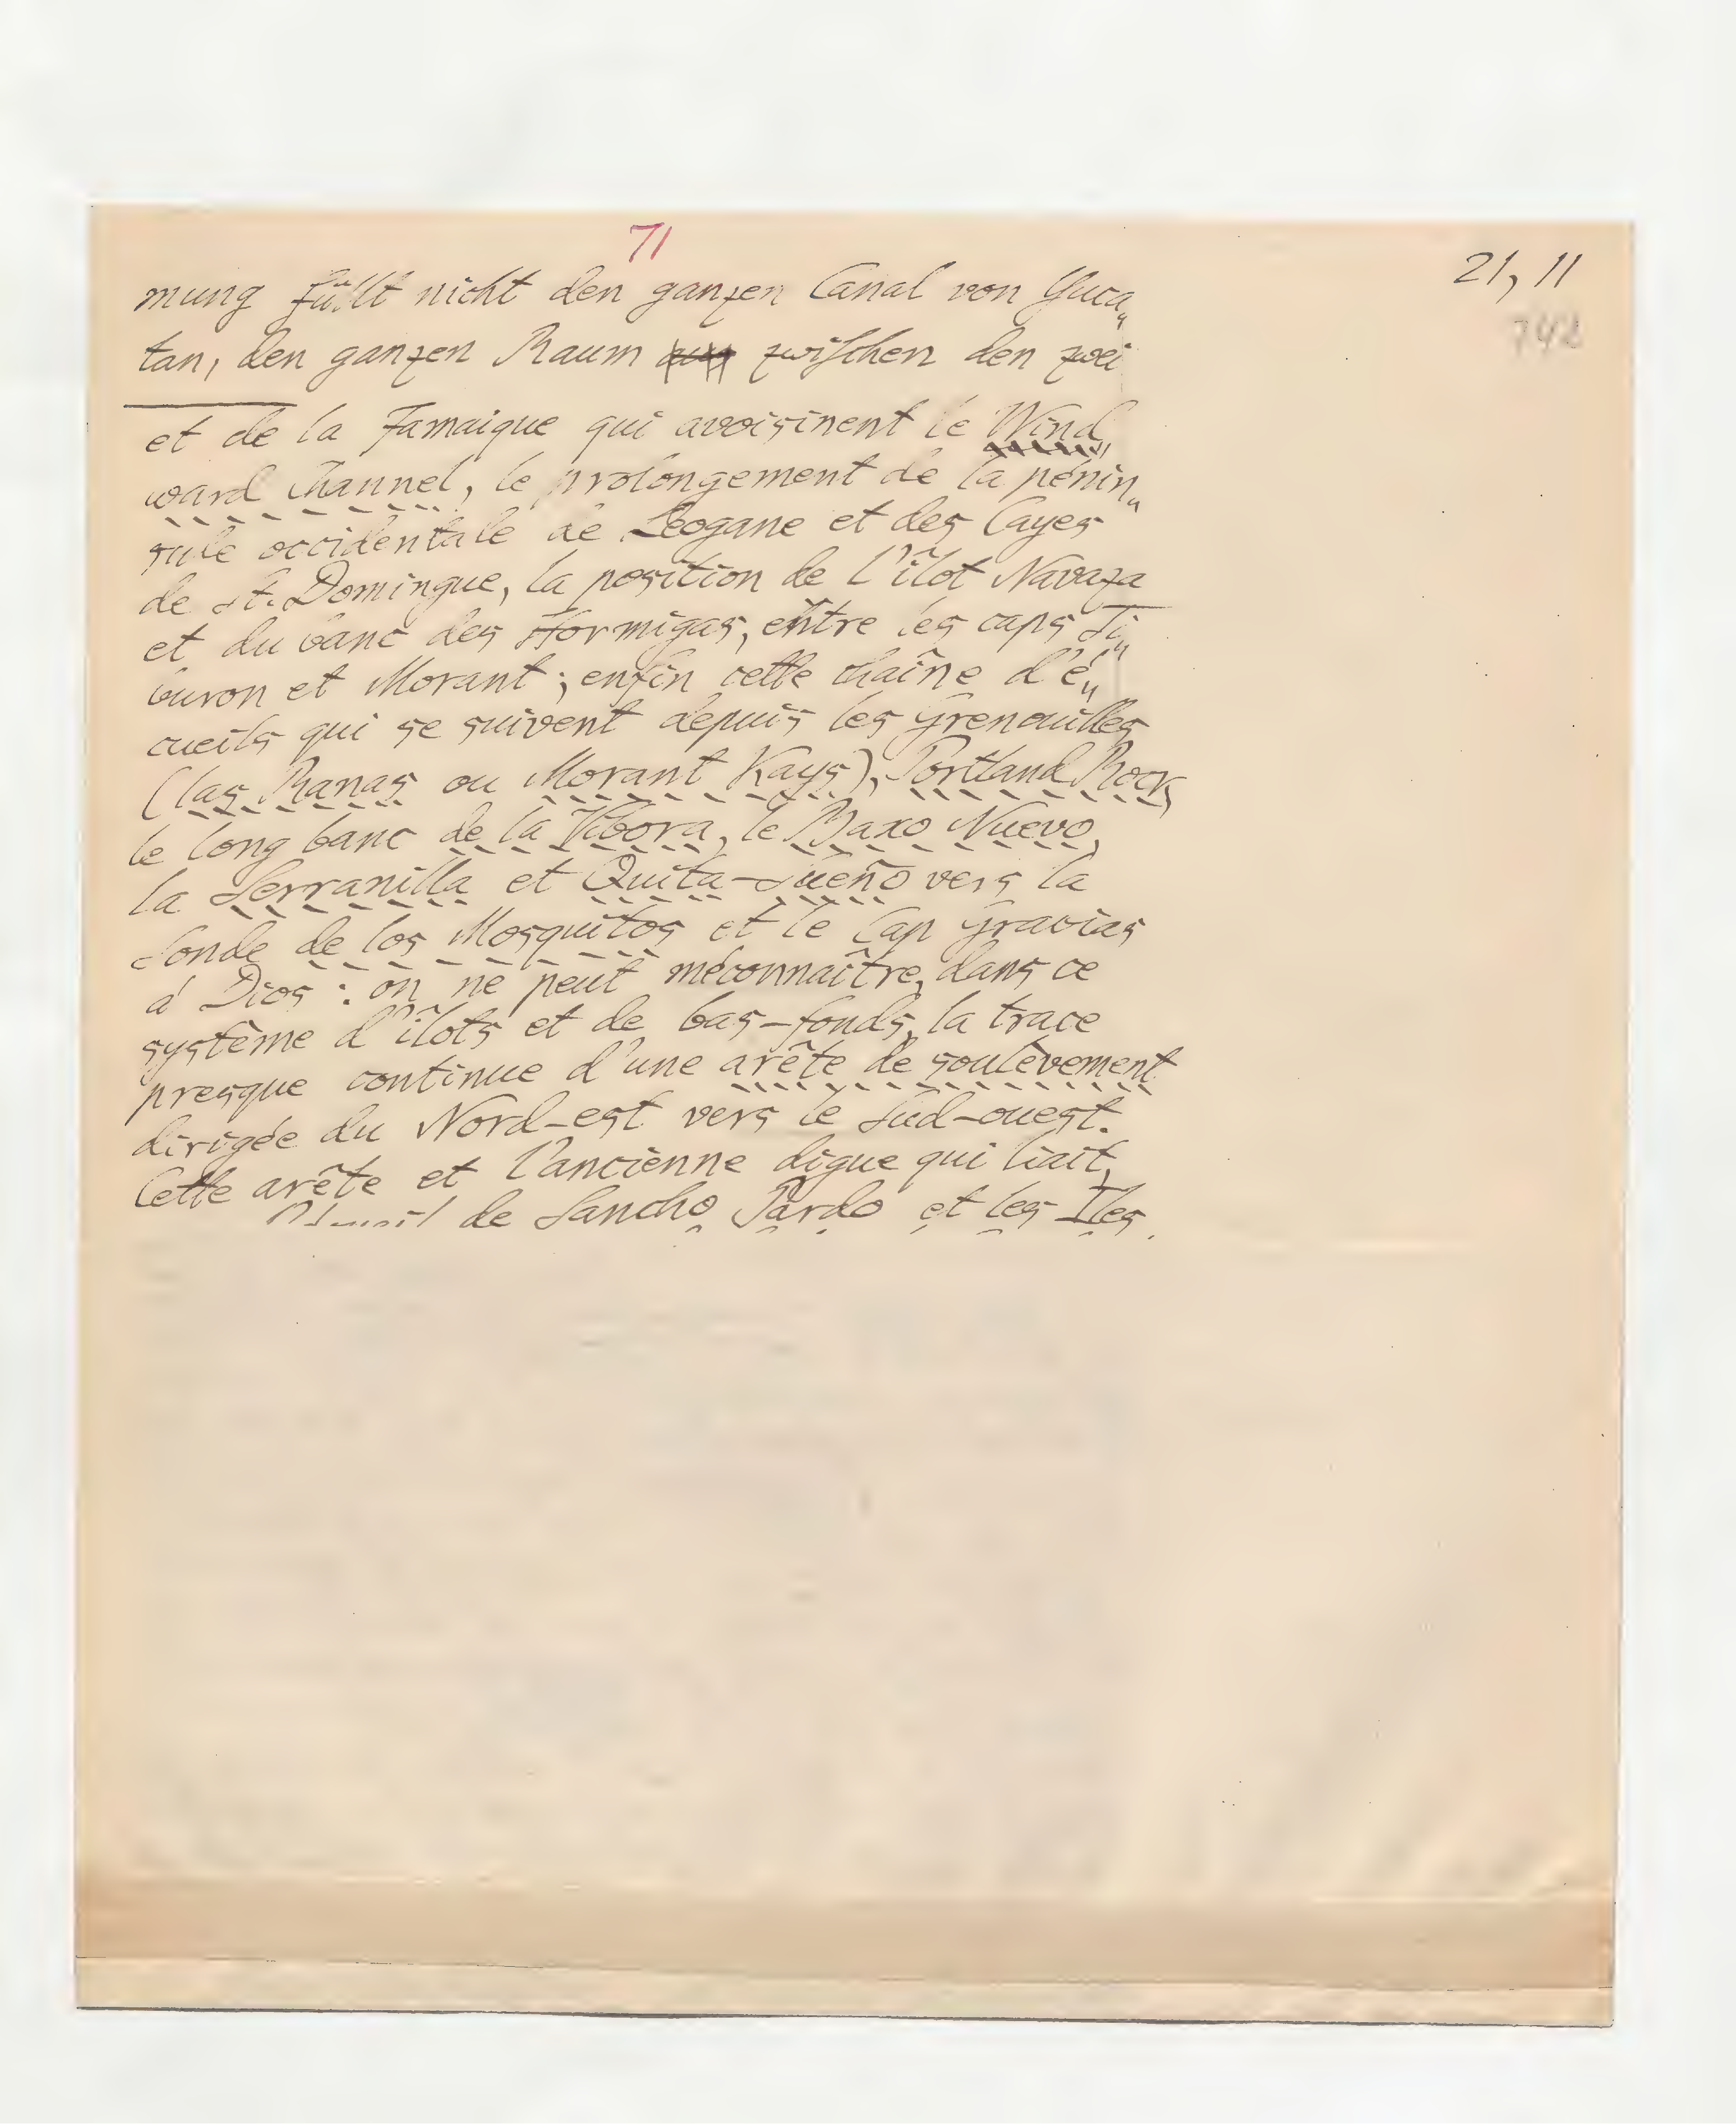 71
21, 11
742
mung füllt nicht den ganzen Canal von Yuca„
tan, den ganzen Raum zwischen den zwei
et de la Jamaique qui avoisinent le Wind„
ward Channel, le prolongement de la pénin„
sule occidentale de Leogane et des Cayes
de St. Domingue, la position de l'îlot Navaza
et du banc des Hormigas, entre les caps Ti„
buron et Morant; enfin cette chaîne d'é„
cueils qui se suivent depuis les Grenouilles
(las Ranas ou Morant Kays), Portland Rock,
le long banc de la Vibora, le Baxo Nuevo,
la Serranilla et Quita-Sueño vers la
Sonde de los Mosquitos et le Cap Gracias
á Dios: on ne peut méconnaître, dans ce
système d'îlots et de bas-fonds, la trace
presque continue d'une arête de soulèvement
dirigée du Nord-est vers le Sud-ouest.
Cette arête et l'ancienne digue qui liait,
de Sancho Pardo et les Iles